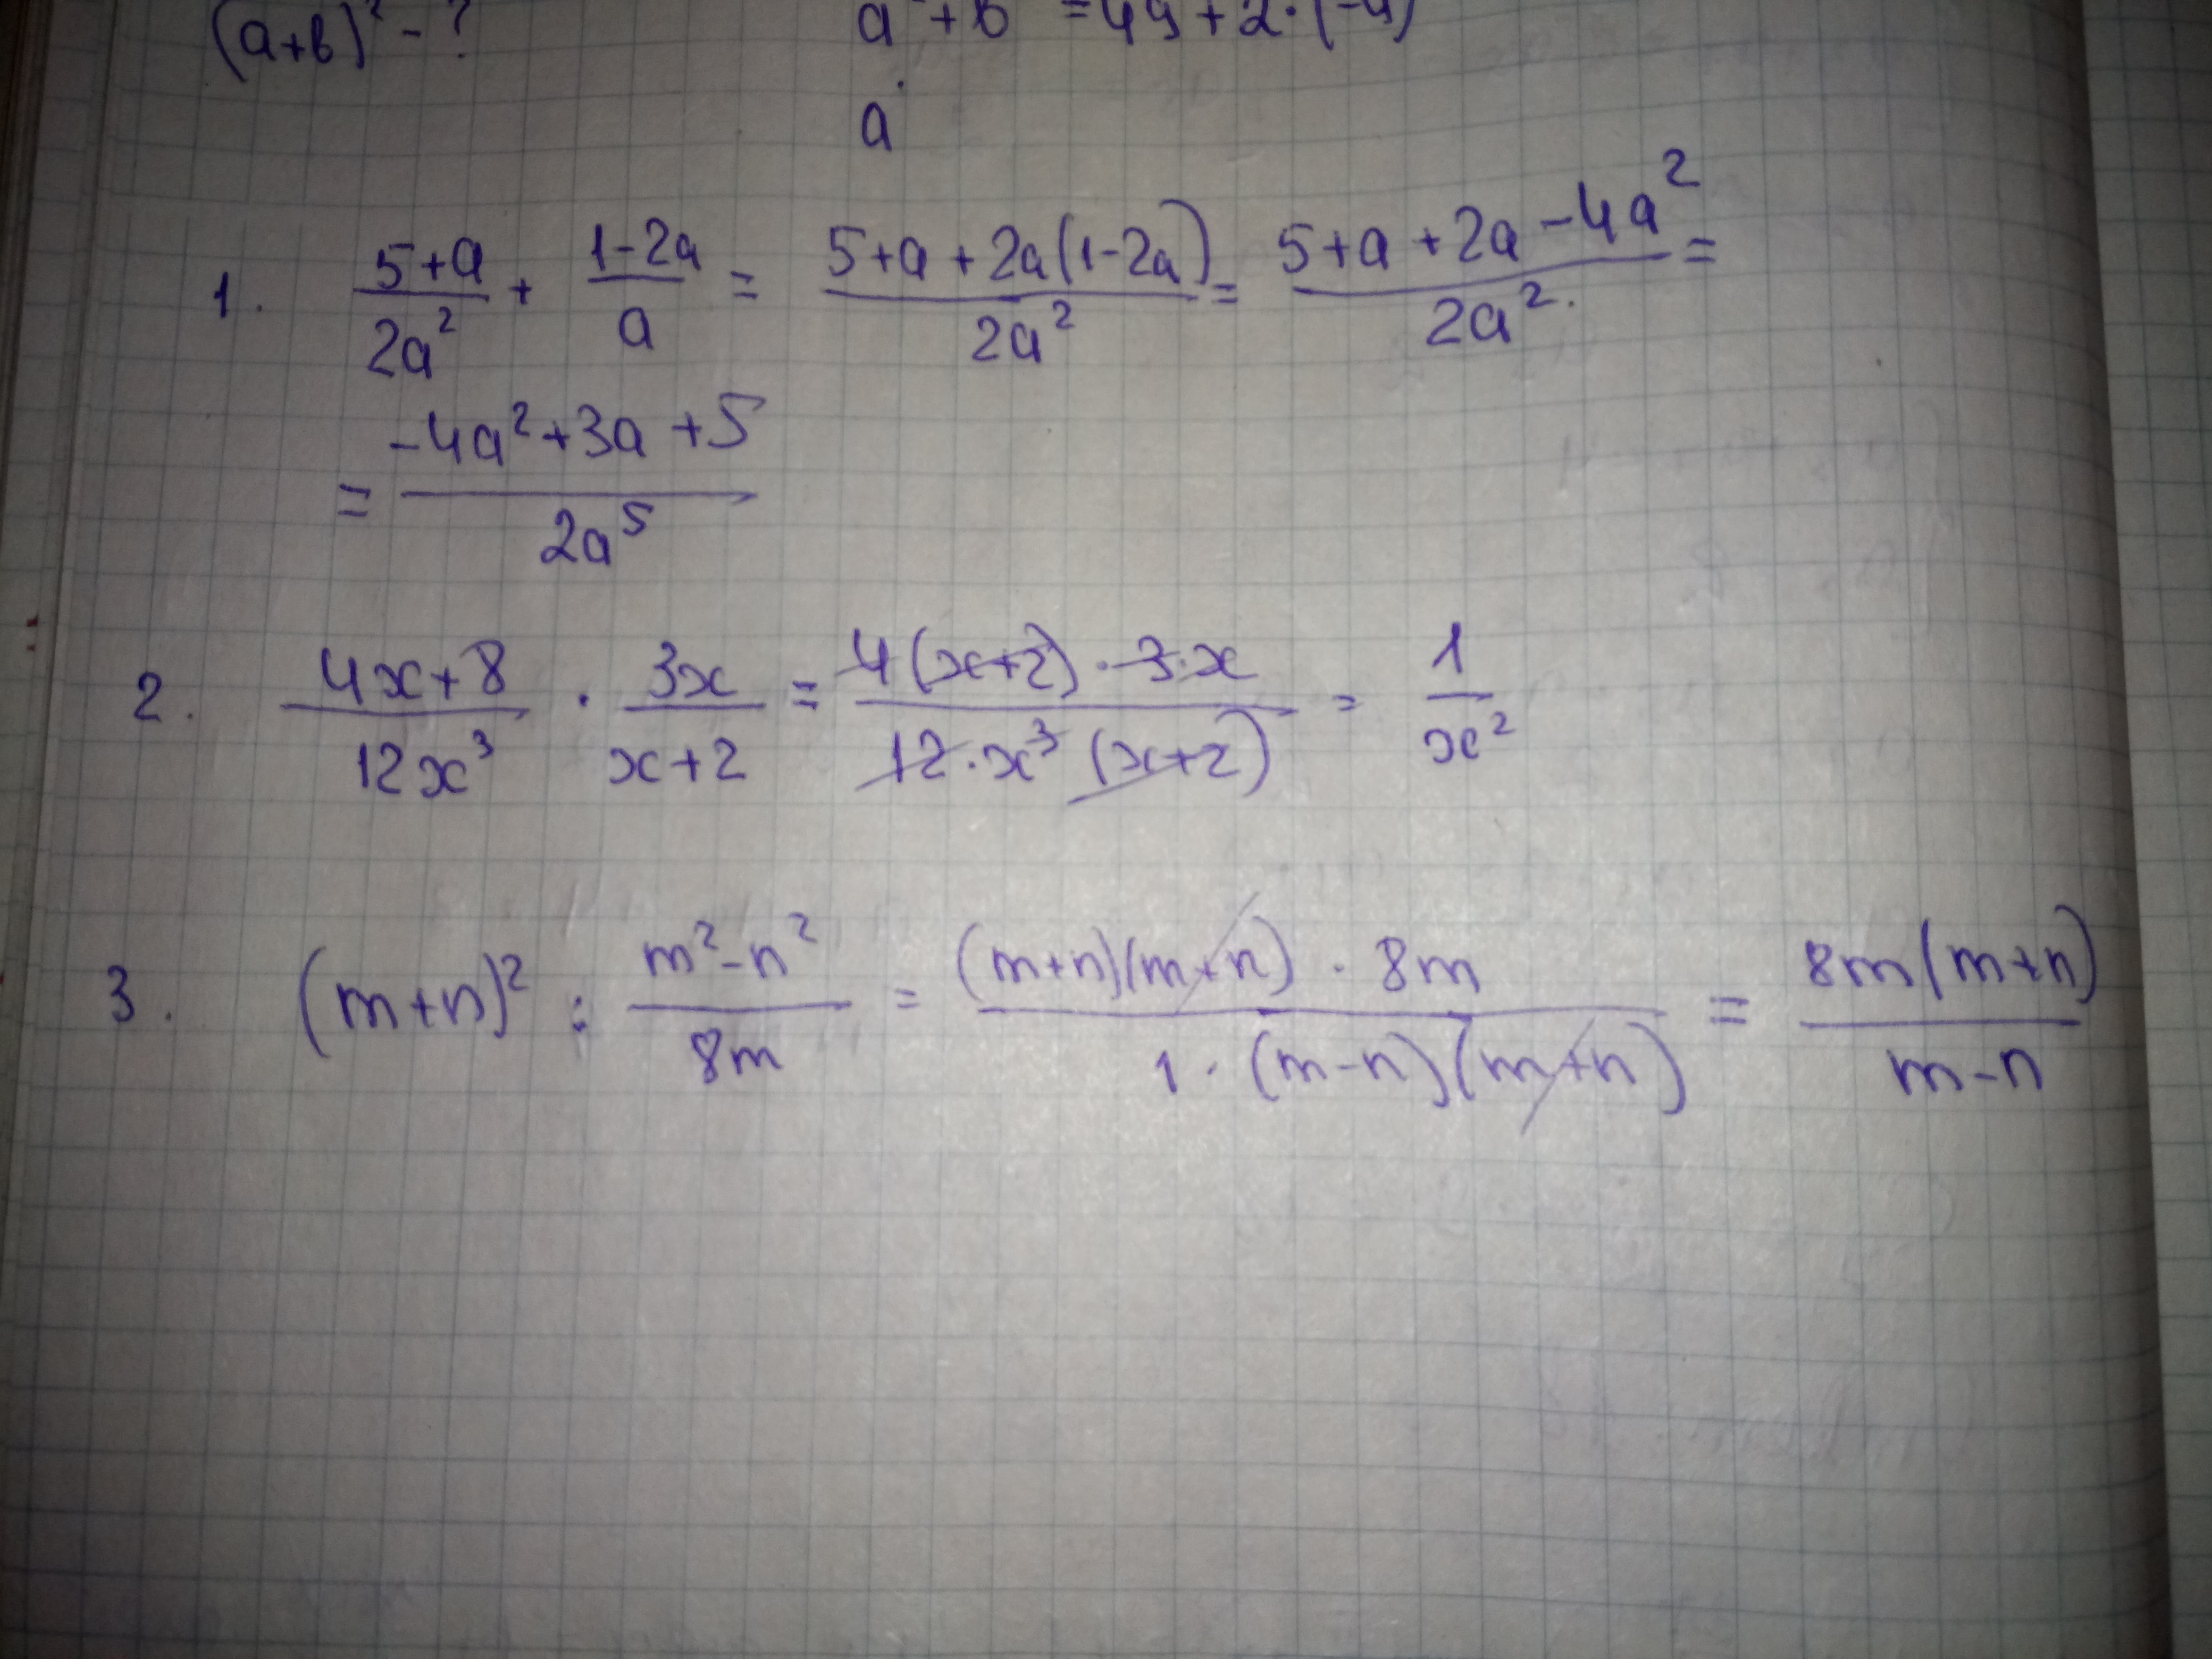 (a+b)² - ?
a + b = 49 + 2·(-4)
a
1. (5+a)/(2a²) + (1-2a)/a = (5+a+2a(1-2a))/(2a²) = (5+a+2a-4a²)/(2a²) =
= (-4a²+3a+5)/(2a⁵)
2. (4x+8)/(12x³) · (3x)/(x+2) = (4(x+2)·3·x)/(12·x³(x+2)) = 1/x²
3. (m+n)² : (m²-n²)/(8m) = ((m+n)(m+n)·8m)/(1·(m-n)(m+n)) = (8m(m+n))/(m-n)